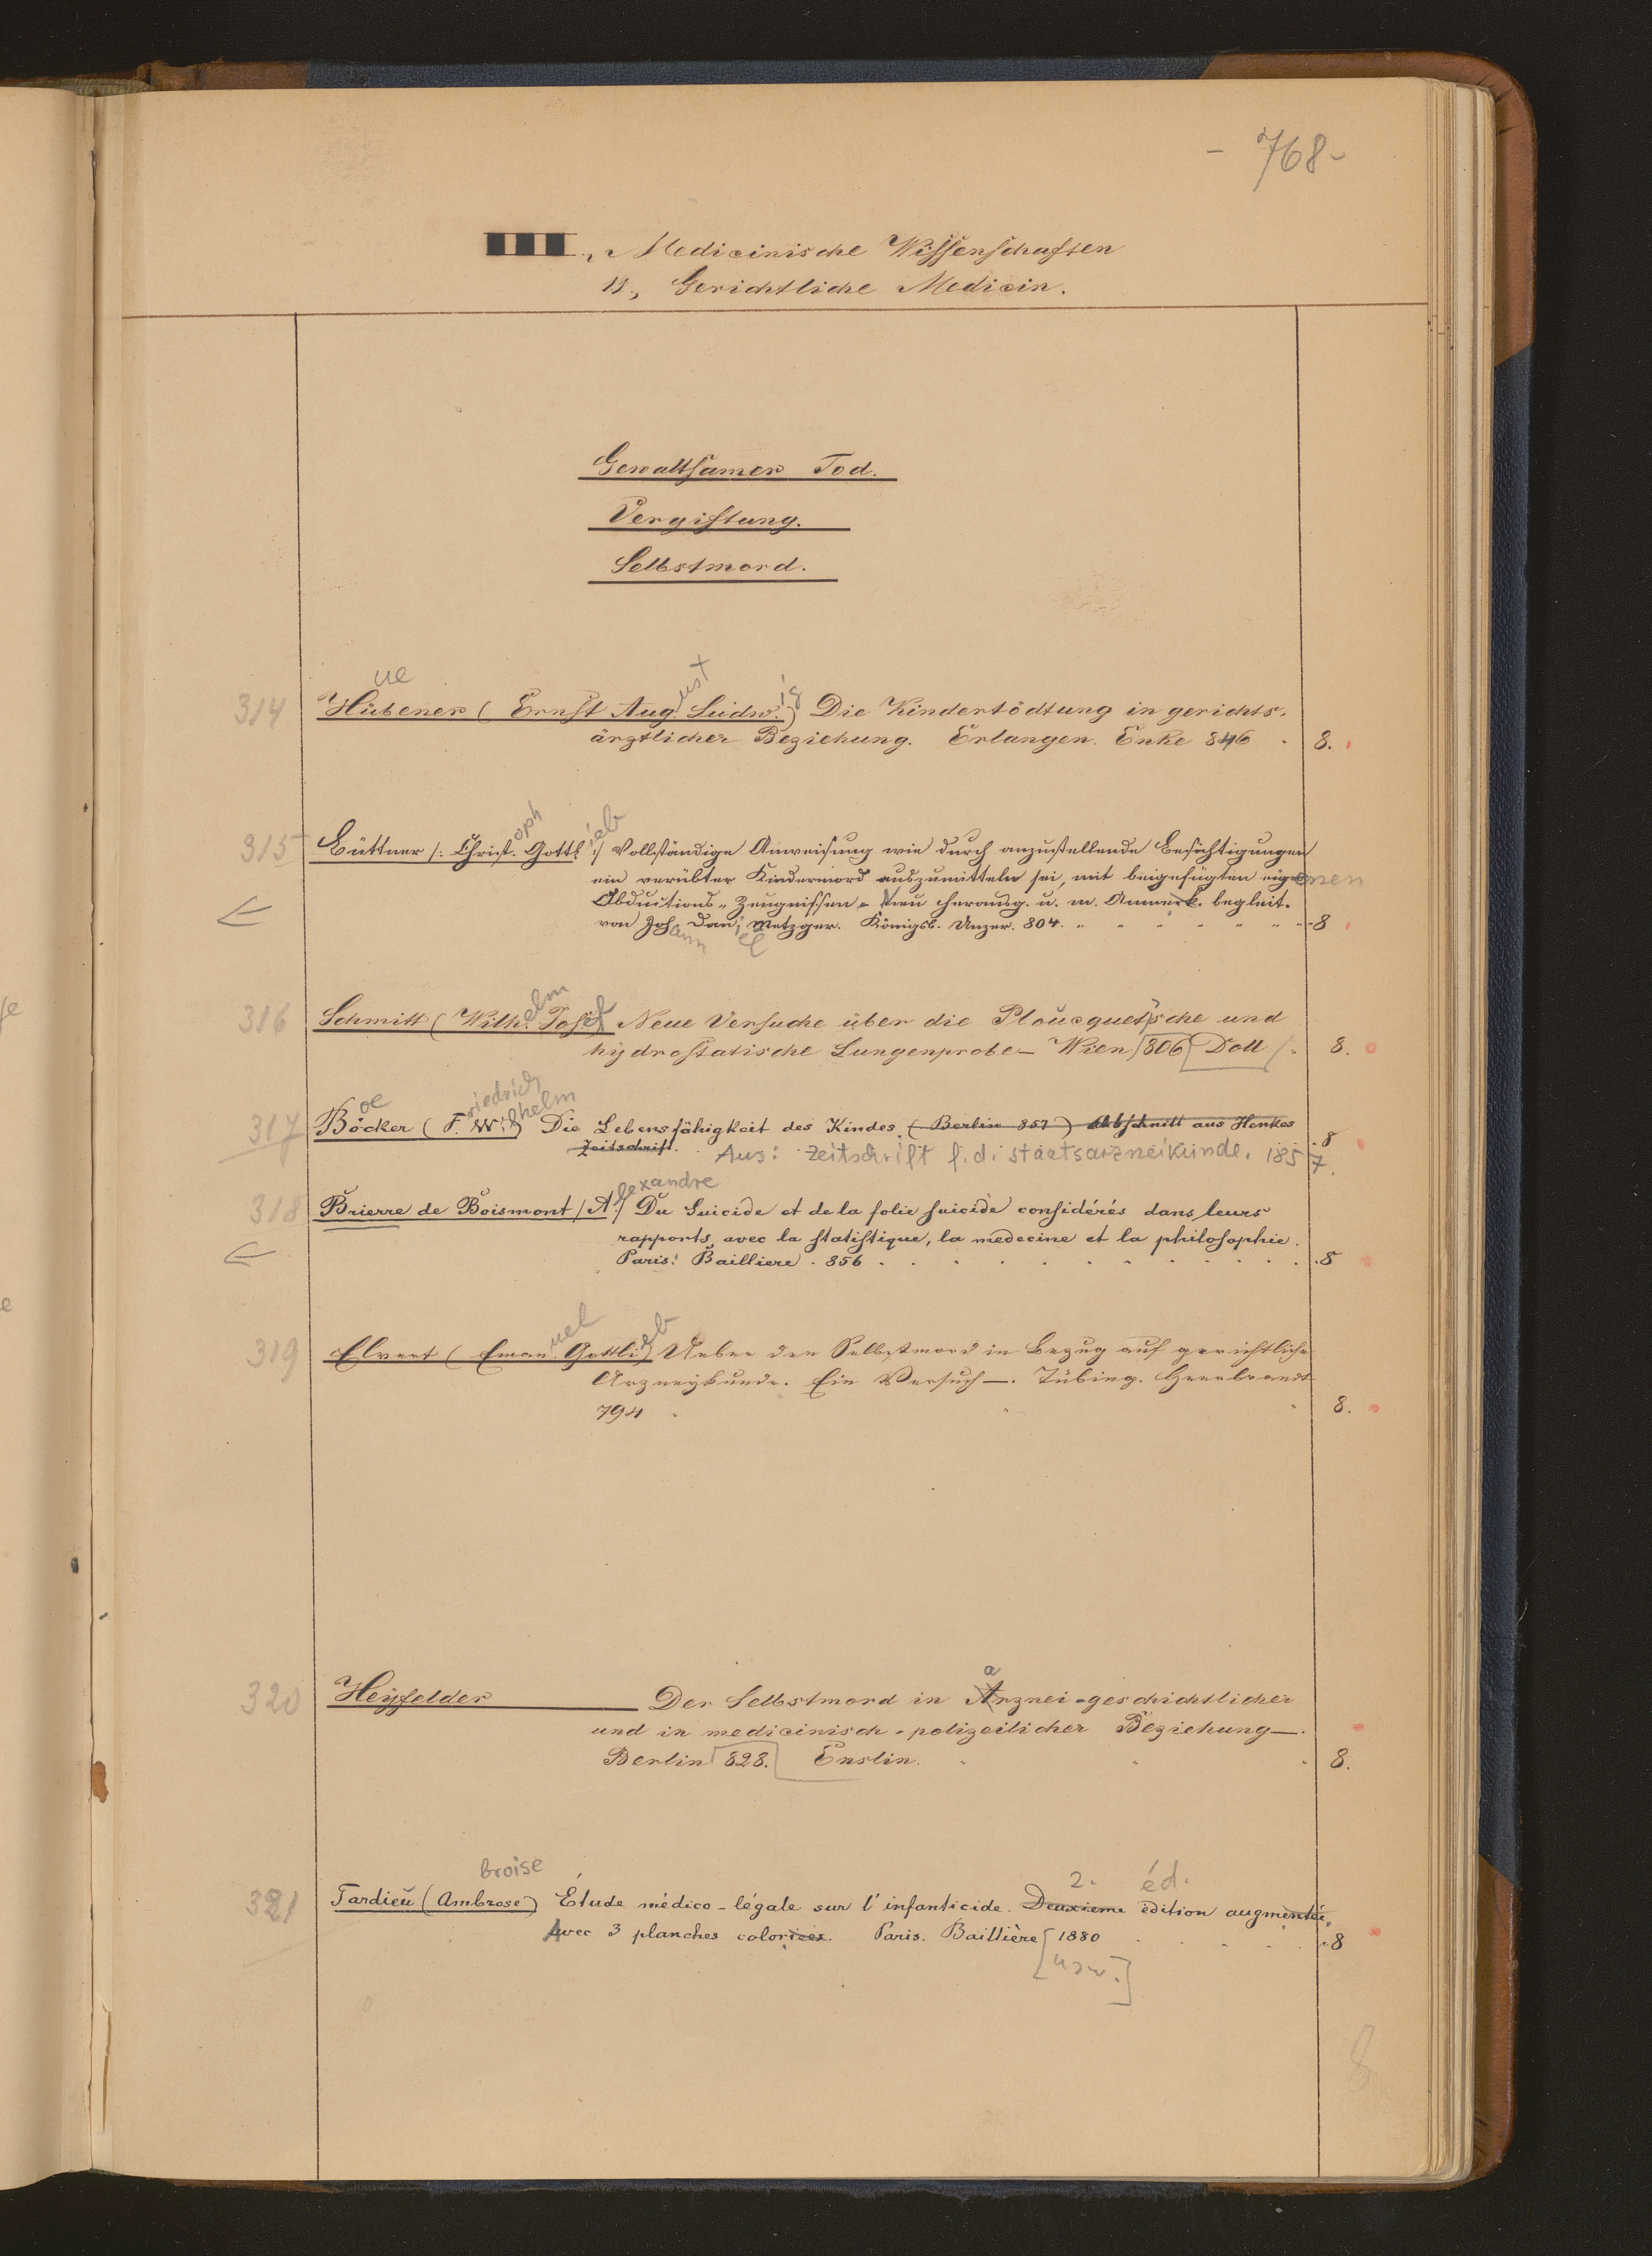 - 768 -
III., Medicinische Wissenschaften
13., Gerichtliche Medicin.
Gewaltsamer Tod.
Vergiftung.
Selbstmord.
ue ust ig
314 Hübener (Ernst Aug. Ludw.) Die Kindertödtung in gerichts-
ärztlicher Beziehung. Erlangen. Enke 846 8.
oph ieb
315 Büttner /: Christ. Gottl. :/ Vollständige Anweisung wie durch anzustellende Besichtigungen
ein verübter Kindermord auszumitteln sei, mit beigefügten eigenen
Obductions-Zeugnissen - Neu herausg. u. m. Anmerk. begleit.
von Joh. Dan. Metzger. Königsb. Unzer. 804. 8
ann iel
elm
316 Schmitt (Wilh. Josef) Neue Versuche über die Ploucquet'sche und
hydrostatische Lungenprobe - Wien [806] Doll 8.
oe riedrich ilhelm
317 Böcker (F. W.) Die Lebensfähigkeit des Kindes. (Berlin 857) Abschnitt aus Henkes
Zeitschrift. Aus: Zeitschrift f. d. Staatsarzneikunde. 1857. 8
lexandre
318 Brierre de Boismont (A.) Du Suicide et de la folie suicide considérés dans leurs
rapports avec la statistique, la médecine et la philosophie.
Paris. Bailliere. 856 8
uel eb
319 Elvert (Eman. Gottli.) Ueber den Selbstmord in Bezug auf gerichtliche
Arzneykunde. Ein Versuch -. Tübing. Heerbrandt
794 8.
a
320 Heyfelder Der Selbstmord in Arznei-geschichtlicher
und in medicinisch-polizeilicher Beziehung -.
Berlin [828.] Enslin. 8.
broise 2. éd.
321 Tardieu (Ambrose) Étude médico-légale sur l'infanticide. Deuxieme édition augmentée,
Avec 3 planches coloriées. Paris. Baillière [1880 8
[usw.]
8